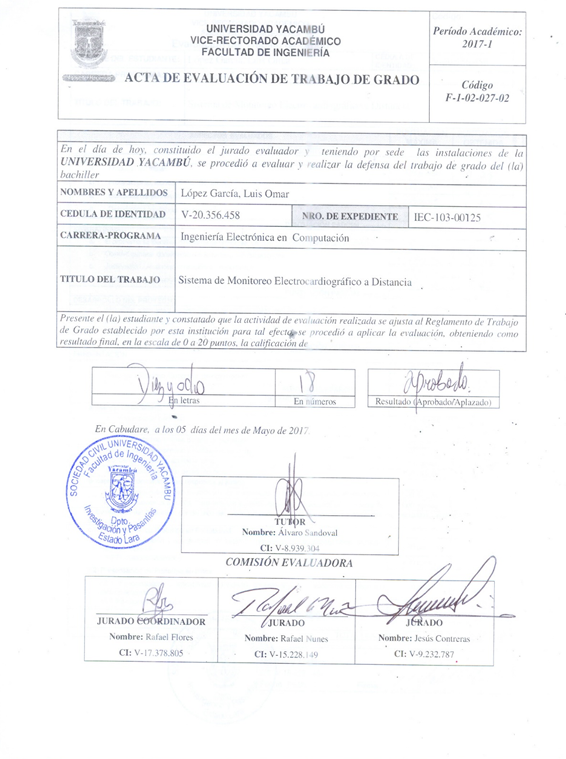 UNIVERSIDAD YACAMBÚ
VICE-RECTORADO ACADÉMICO
FACULTAD DE INGENIERÍA
ACTA DE EVALUACIÓN DE TRABAJO DE GRADO
Período Académico:
2017-1
Código
F-1-02-027-02
En el día de hoy, constituido el jurado evaluador y teniendo por sede las instalaciones de la
UNIVERSIDAD YACAMBÚ, se procedió a evaluar y realizar la defensa del trabajo de grado del (la)
bachiller
NOMBRES Y APELLIDOS López García, Luis Omar
CEDULA DE IDENTIDAD V-20.356.458 NRO. DE EXPEDIENTE IEC-103-00125
CARRERA-PROGRAMA Ingeniería Electrónica en Computación
TITULO DEL TRABAJO Sistema de Monitoreo Electrocardiográfico a Distancia
Presente el (la) estudiante y constatado que la actividad de evaluación realizada se ajusta al Reglamento de Trabajo
de Grado establecido por esta institución para tal efecto se procedió a aplicar la evaluación, obteniendo como
resultado final, en la escala de 0 a 20 puntos, la calificación de
Diez y ocho 18 Aprobado
En letras En números Resultado (Aprobado/Aplazado)
En Cabudare, a los 05 días del mes de Mayo de 2017.
SOCIEDAD CIVIL UNIVERSIDAD YACAMBU
Facultad de Ingeniería
Yacambú
Dpto.
Investigación y Pasantías
Estado Lara
TUTOR
Nombre: Álvaro Sandoval
CI: V-8.939.304
COMISIÓN EVALUADORA
JURADO COORDINADOR JURADO JURADO
Nombre: Rafael Flores Nombre: Rafael Nunes Nombre: Jesús Contreras
CI: V-17.378.805 CI: V-15.228.149 CI: V-9.232.787